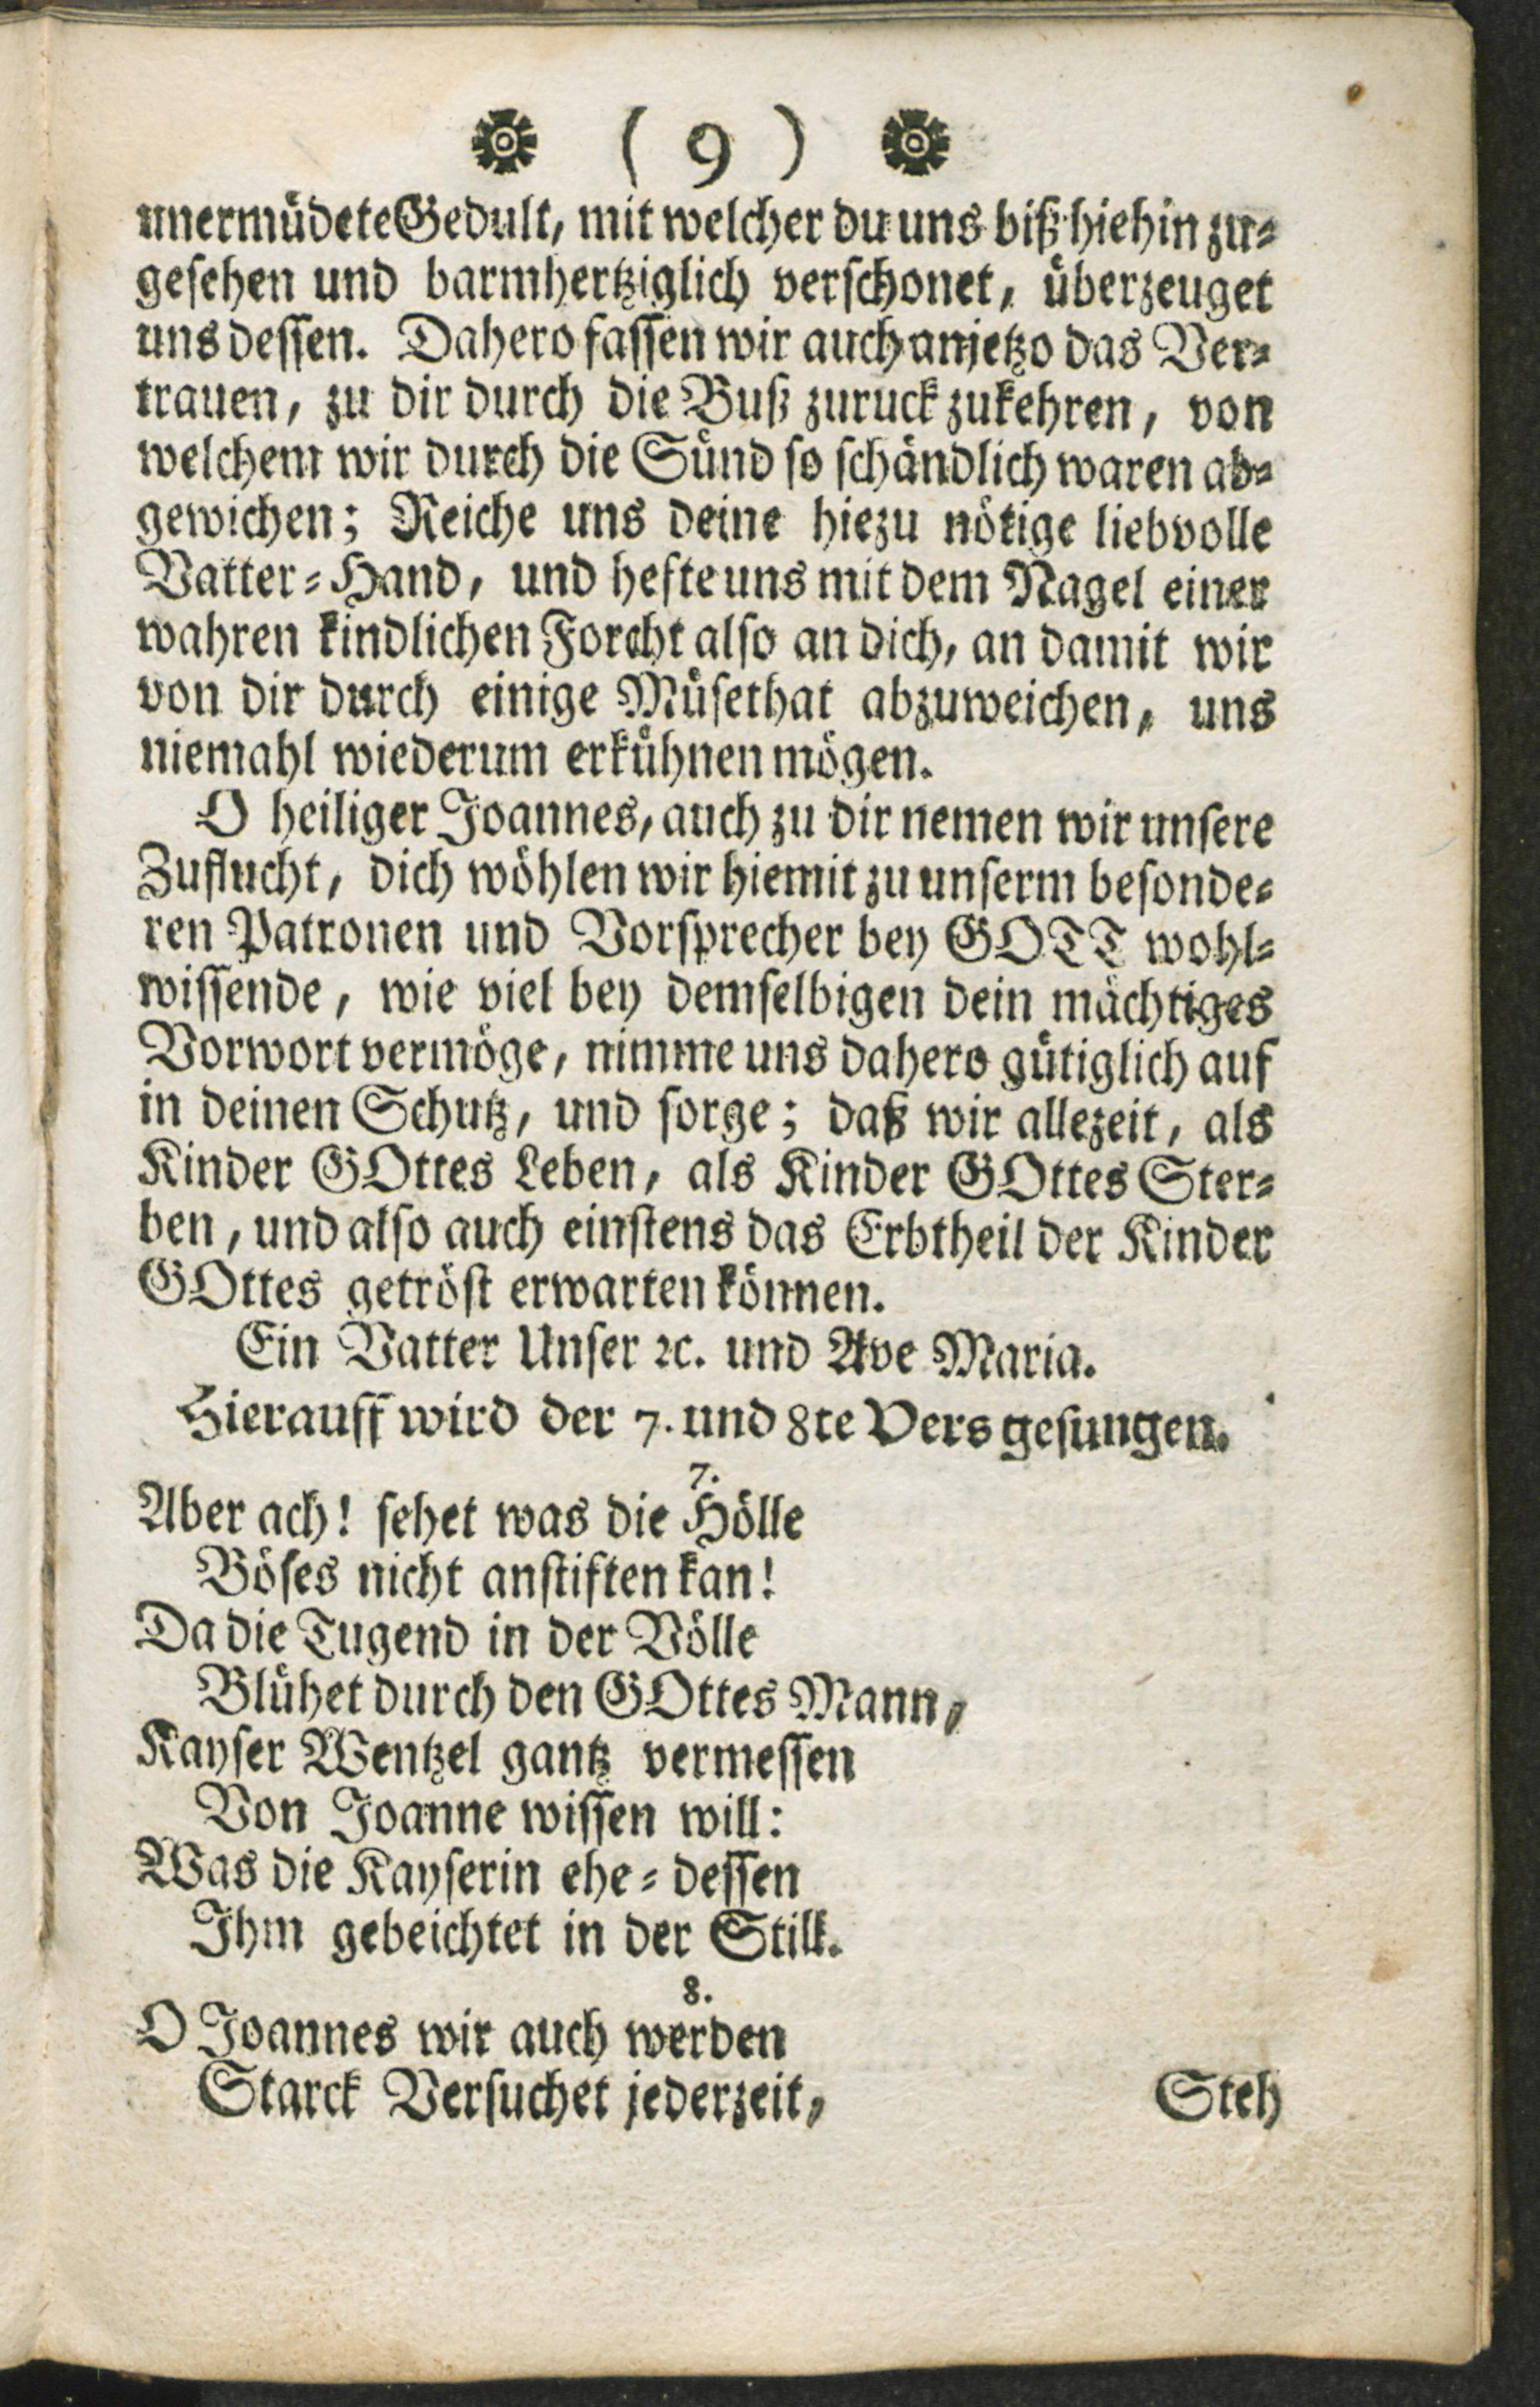 ( 9 )
unermüdete Gedult, mit welcher du uns biß hiehin zu-
gesehen und barmhertziglich verschonet, überzeuget
uns dessen. Dahero fassen wir auch anjetzo das Ver-
trauen, zu dir durch die Buß zuruck zukehren, von
welchem wir durch die Sünd so schändlich waren ab-
gewichen; Reiche uns deine hiezu nötige liebvolle
Vatter-Hand, und hefte uns mit dem Nagel einer
wahren kindlichen Forcht also an dich, an damit wir
von dir durch einige Müsethat abzuweichen, uns
niemahl wiederum erkühnen mögen.
O heiliger Joannes, auch zu dir nemen wir unsere
Zuflucht, dich wöhlen wir hiemit zu unserm besonde-
ren Patronen und Vorsprecher bey GOTT wohl-
wissende, wie viel bey demselbigen dein mächtiges
Vorwort vermöge, nimme uns dahero gütiglich auf
in deinen Schutz, und sorge; daß wir allezeit, als
Kinder GOttes Leben, als Kinder GOttes Ster-
ben, und also auch einstens das Erbtheil der Kinder
GOttes getröst erwarten können.
Ein Vatter Unser ꝛc. und Ave Maria.
Hierauff wird der 7. und 8te Vers gesungen.
7.
Aber ach! sehet was die Hölle
Böses nicht anstiften kan!
Da die Tugend in der Völle
Blühet durch den GOttes Mann,
Kayser Wentzel gantz vermessen
Von Joanne wissen will:
Was die Kayserin ehe-dessen
Ihm gebeichtet in der Still.
8.
O Joannes wir auch werden
Starck Versuchet jederzeit,
Steh